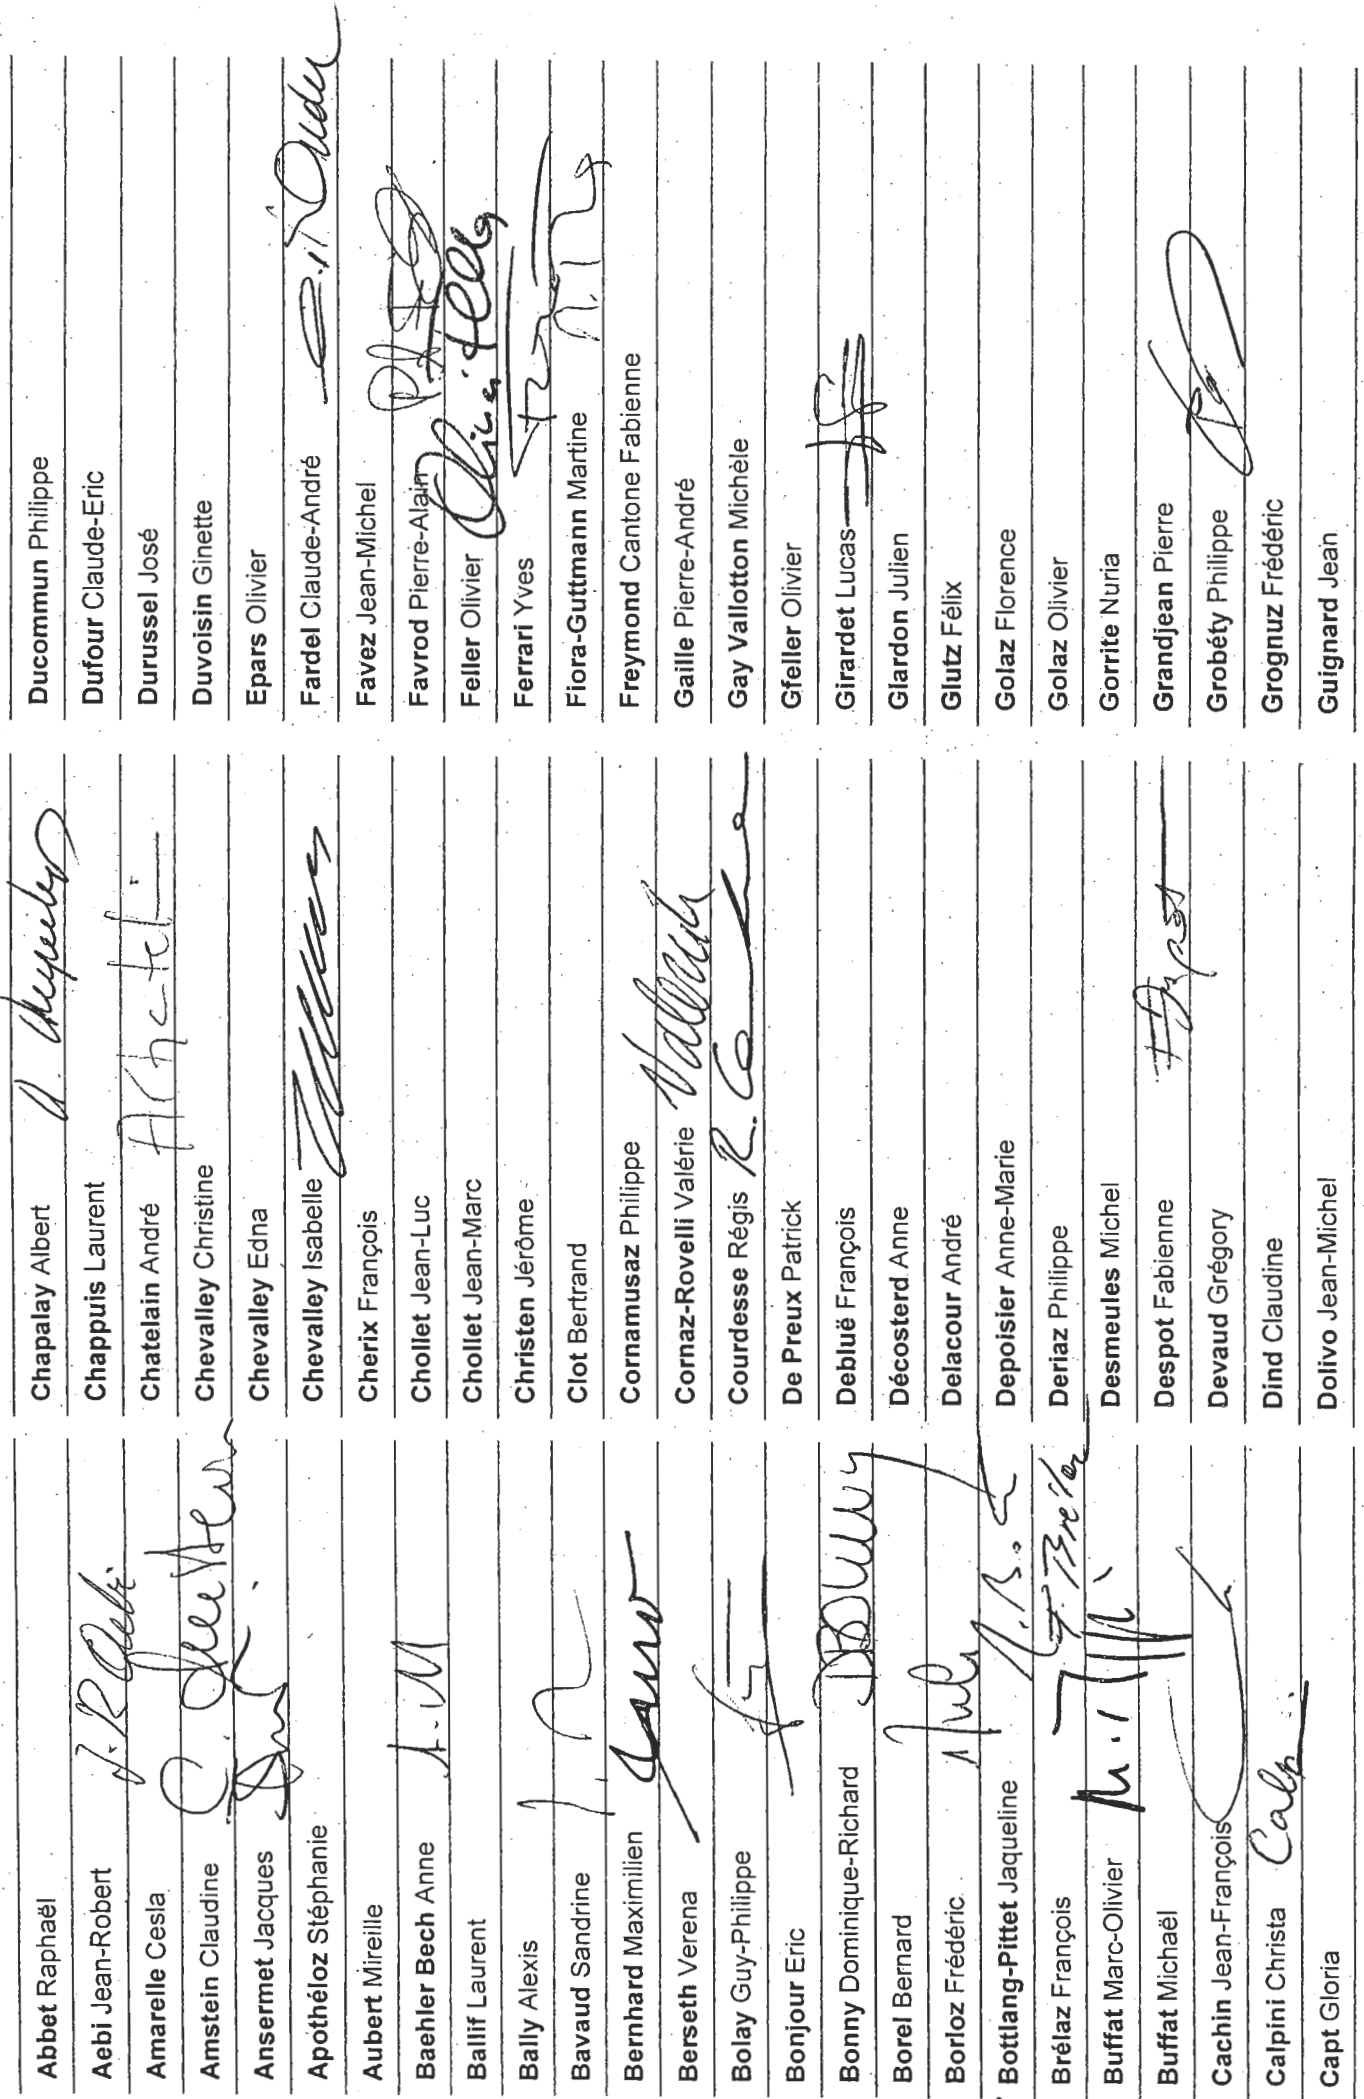 Abbet Raphaël
Aebi Jean-Robert J-R Aebi
Amarelle Cesla
Amstein Claudine C. Amstein
Ansermet Jacques
Apothéloz Stéphanie
Aubert Mireille
Baehler Bech Anne
Ballif Laurent
Bally Alexis
Bavaud Sandrine
Bernhard Maximilien
Berseth Verena
Bolay Guy-Philippe
Bonjour Eric
Bonny Dominique-Richard
Borel Bernard
Borloz Frédéric
Bottlang-Pittet Jaqueline
Brélaz François F. Brélaz
Buffat Marc-Olivier
Buffat Michaël
Cachin Jean-François
Calpini Christa Calp
Capt Gloria
Chapalay Albert A. Chapalay
Chappuis Laurent
Chatelain André A Chatel
Chevalley Christine
Chevalley Edna
Chevalley Isabelle
Cherix François
Chollet Jean-Luc
Chollet Jean-Marc
Christen Jérôme
Clot Bertrand
Cornamusaz Philippe
Cornaz-Rovelli Valérie
Courdesse Régis R. Co
De Preux Patrick
Debluë François
Décosterd Anne
Delacour André
Depoisier Anne-Marie
Deriaz Philippe
Desmeules Michel
Despot Fabienne FDespot
Devaud Grégory
Dind Claudine
Dolivo Jean-Michel
Ducommun Philippe
Dufour Claude-Eric
Durussel José
Duvoisin Ginette
Epars Olivier
Fardel Claude-André
Favez Jean-Michel
Favrod Pierre-Alain
Feller Olivier Olivier Feller
Ferrari Yves
Fiora-Guttmann Martine
Freymond Cantone Fabienne
Gaille Pierre-André
Gay Vallotton Michèle
Gfeller Olivier
Girardet Lucas
Glardon Julien
Glutz Félix
Golaz Florence
Golaz Olivier
Gorrite Nuria
Grandjean Pierre
Grobéty Philippe
Grognuz Frédéric
Guignard Jean